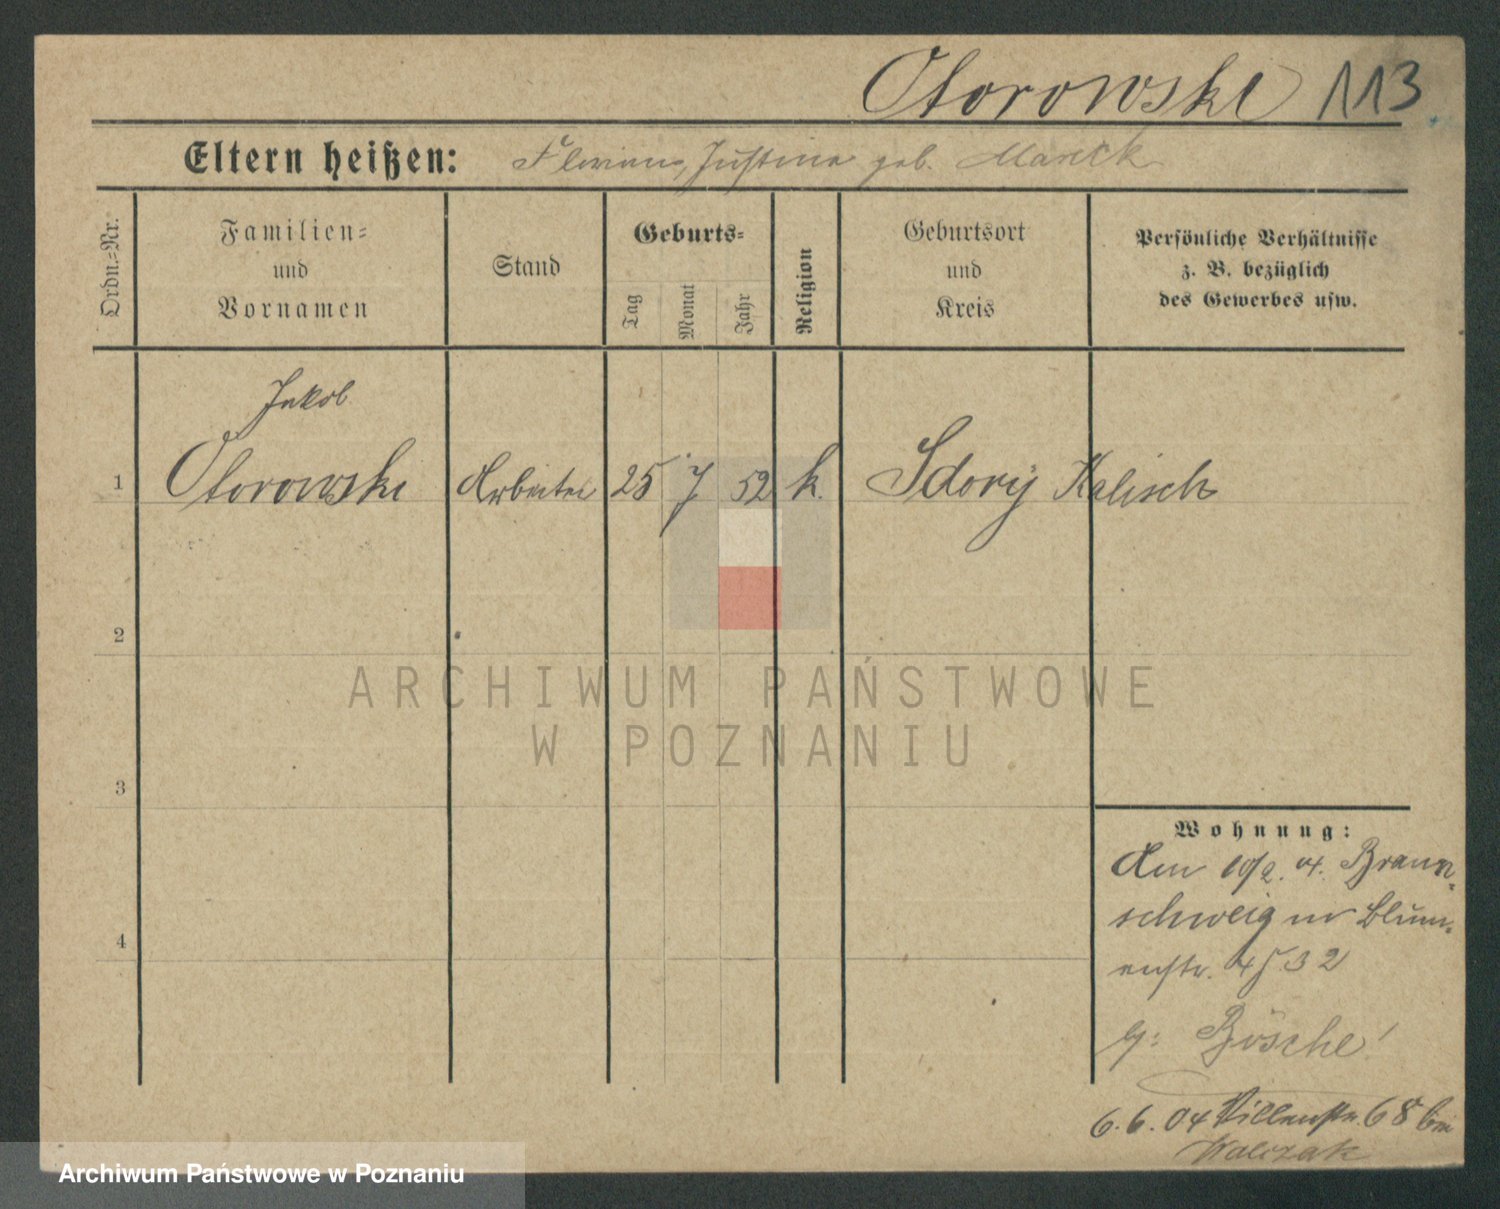 Otorowski 113
Eltern heißen: Florian, Justina geb. Mareck
Ordn.=Nr.
Familien=
und
Vornamen
Stand
Geburts=
Tag
Monat
Jahr
Religion
Geburtsort
und
Kreis
Persönliche Verhältnisse
z. B. bezüglich
des Gewerbes usw.
Jakob
1 Otorowski Arbeiter 25 7 52 k. Sdory Kalisch
2
3
4
Wohnung:
Am 19/2. 04. Braun-
schweig in Blum-
enstr. 32
Bösche!
6.6.04 Villenstr. 68 bei
Walczak
ARCHIWUM PAŃSTWOWE
W POZNANIU
Archiwum Państwowe w Poznaniu